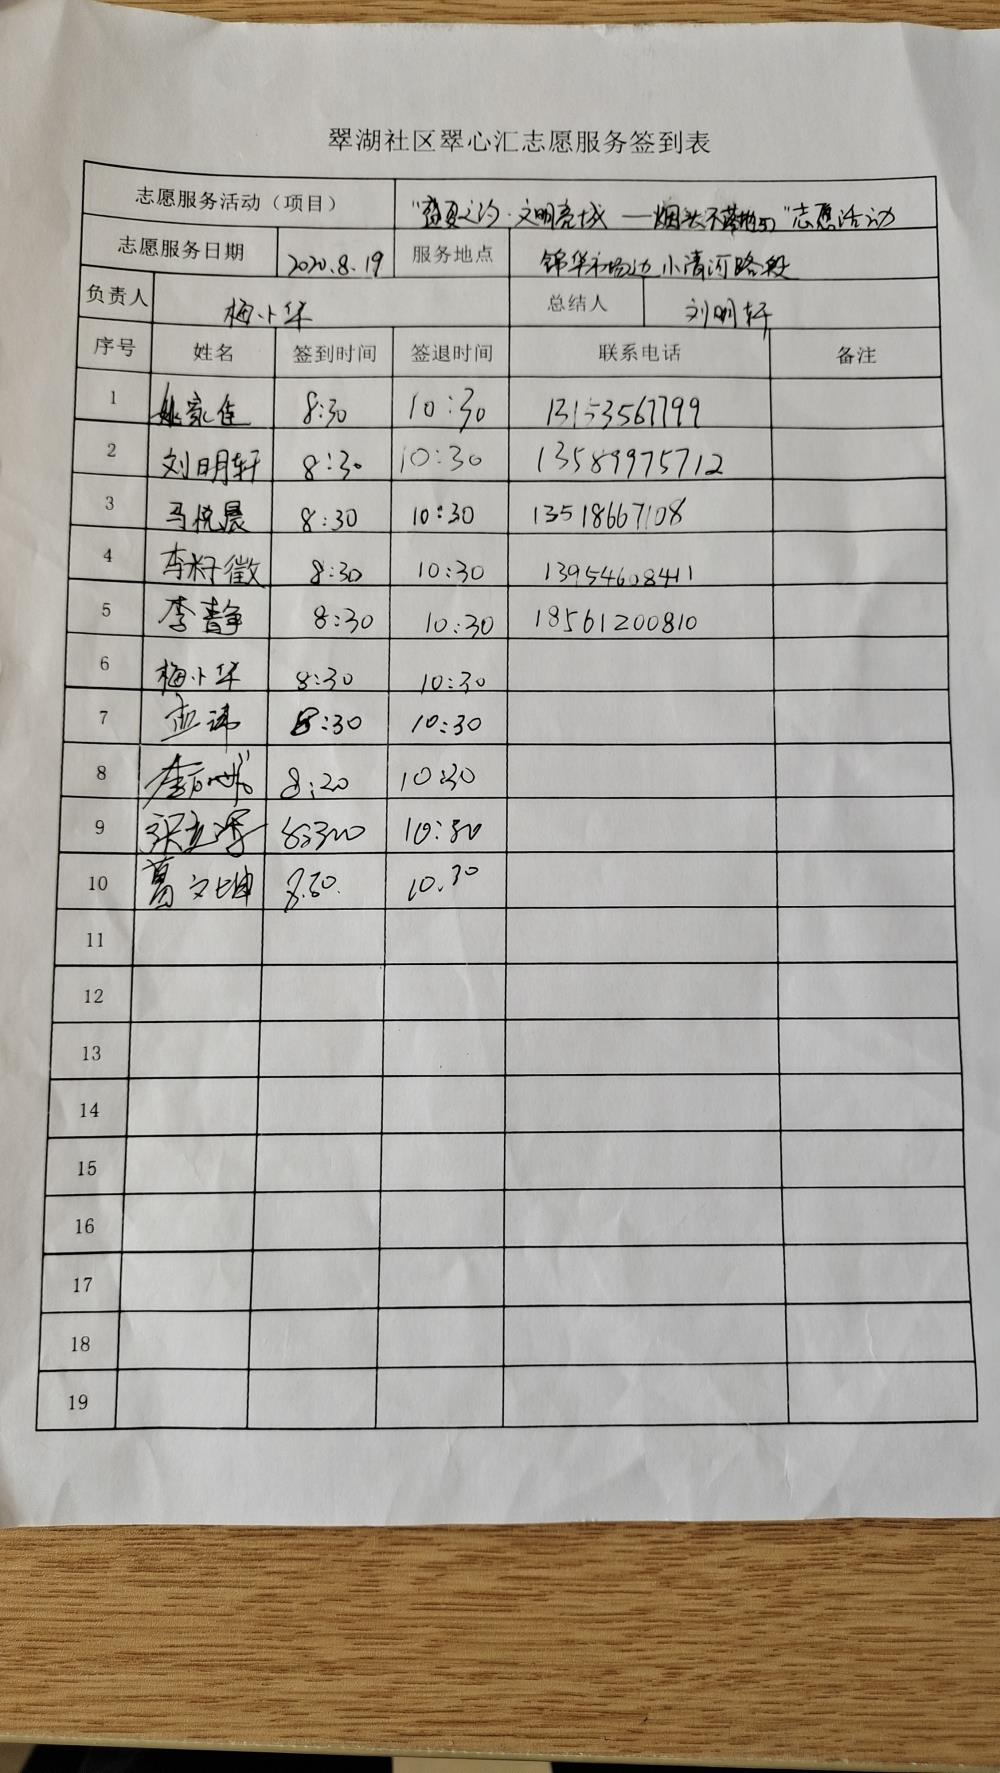 翠湖社区翠心汇志愿服务签到表
志愿服务活动（项目） “盛夏之约·文明亮城——烟头不落地”志愿活动
志愿服务日期 2020.8.19 服务地点 锦华市场边小清河路段
负责人 梅小华 总结人 刘明轩
序号 姓名 签到时间 签退时间 联系电话 备注
1 姚家佳 8:30 10:30 13153567799
2 刘明轩 8:30 10:30 13589975712
3 马悦晨 8:30 10:30 13518667108
4 李籽徵 8:30 10:30 13954608411
5 李静 8:30 10:30 18561200810
6 梅小华 8:30 10:30
7 8:30 10:30
8 8:20 10:30
9 10:30
10 葛文坤 8:30. 10.30
11
12
13
14
15
16
17
18
19